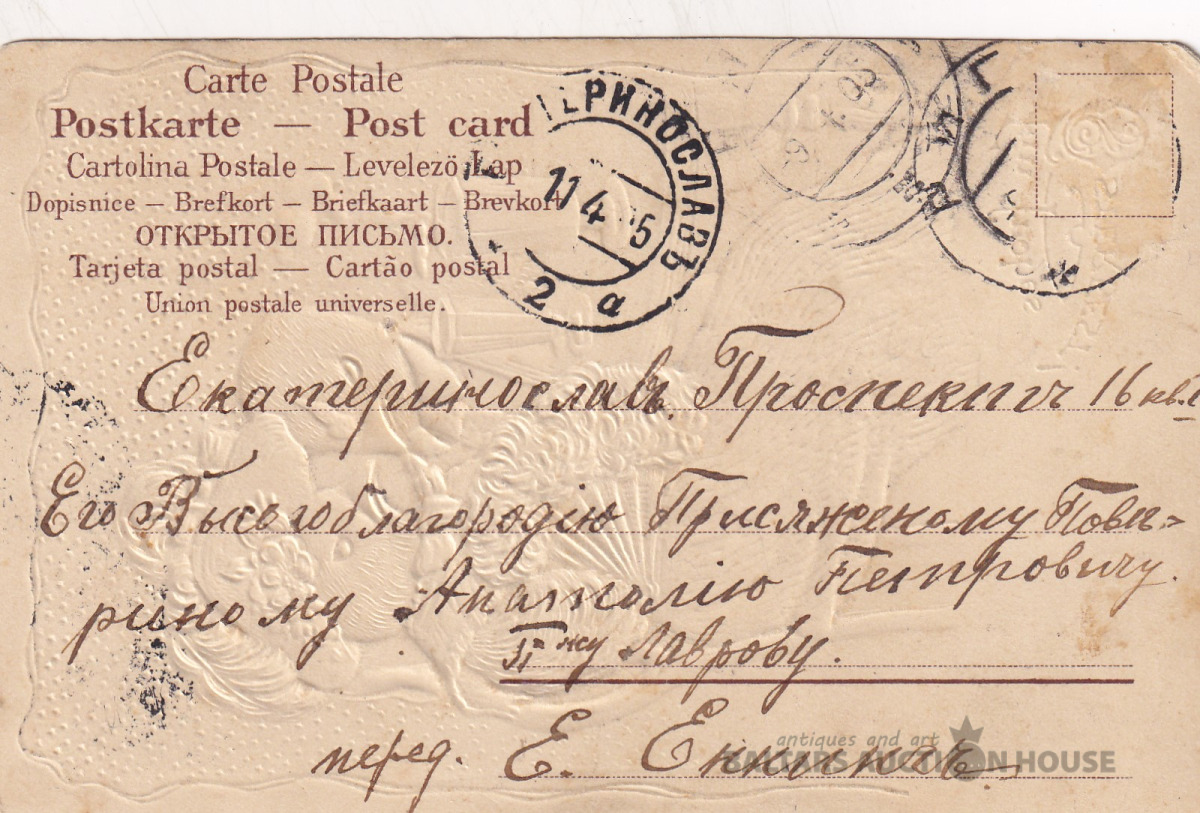 Carte Postale
Postkarte — Post card
Cartolina Postale — Levelezö Lap
Dopisnice — Brefkort — Briefkaart — Brevkort
ОТКРЫТОЕ ПИСЬМО.
Tarjeta postal — Cartão postal
Union postale universelle.
ТЕРИНОСЛАВЪ
11 4 5
2 а
Екатеринославъ. Проспектъ 16 кв.
Его Высокоблагородію Присяжному Повѣ=
ренному Анатолію Петровичу
Г=ну Лаврову.
перед. Е.
antiques and art
BALTARS AUCTION HOUSE